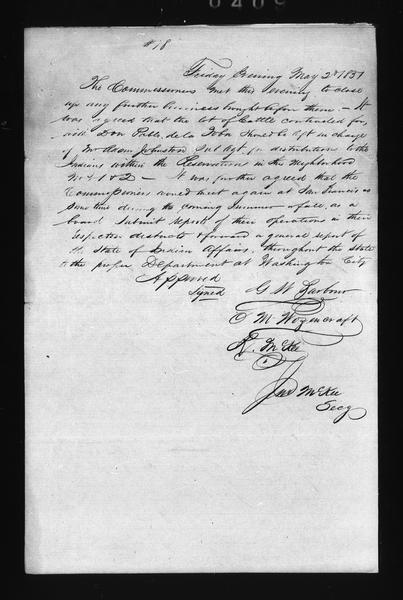 #18
Friday Evening May 2d 1851
The Commissioners met this evening to close
up any further business brought before them – It
was agreed that the lot of Cattle contracted for,
with Don Pablo de la be left in charge
of Mr Adam Johnston Sub Agt for distribution to the
Indians within the Reservations in the Neighborhood
No. 1 & 2 – It was further agreed that the
Commissioners would meet again at San Francisco
some time during the coming Summer or fall, as a
board submit reports of their operations in their
respective districts & forward a general report of
the State of Indian Affairs, throughout the State
to the proper Department at Washington City
Approved
Signed G. W. Barbour
O M Wozencraft
R. McKee
Jno McKee
Secy